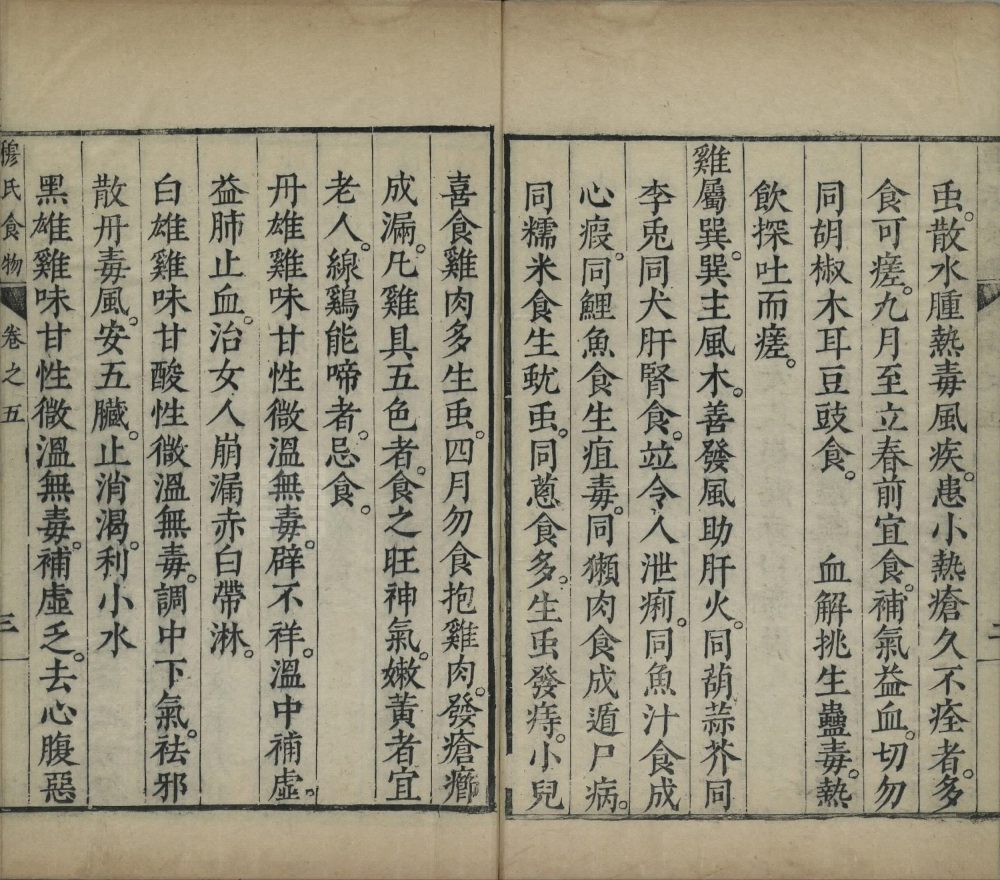 虫。散水腫熱毒風疾。患小熱瘡久不痊者。多
食可瘥。九月至立春前宜食。補氣益血。切勿
同胡椒木耳豆豉食。 血解挑生蠱毒。熱
飲探吐而瘥。
雞屬巽。巽主風木。善發風助肝火。同葫蒜芥同
李兎同犬肝腎食。竝令人泄痢。同魚汁食成
心瘕。同鯉魚食生疽毒。同獺肉食成遁尸病。
同糯米食生蚘虫。同蔥食多。生虫發痔。小兒
喜食雞肉多生虫。四月勿食抱雞肉。發瘡癤
成漏。凢雞具五色者。食之旺神氣。嫩黃者宜
老人。線鷄能啼者。忌食。
丹雄雞味甘性微溫無毒。辟不祥。溫中補虛。
益肺止血。治女人崩漏赤白帶淋。
白雄雞味甘酸性微溫無毒。調中下氣。祛邪
散丹毒風。安五臟。止消渴。利小水
黑雄雞味甘性微溫無毒。補虛乏。去心腹惡
穆氏食物 卷之五 三